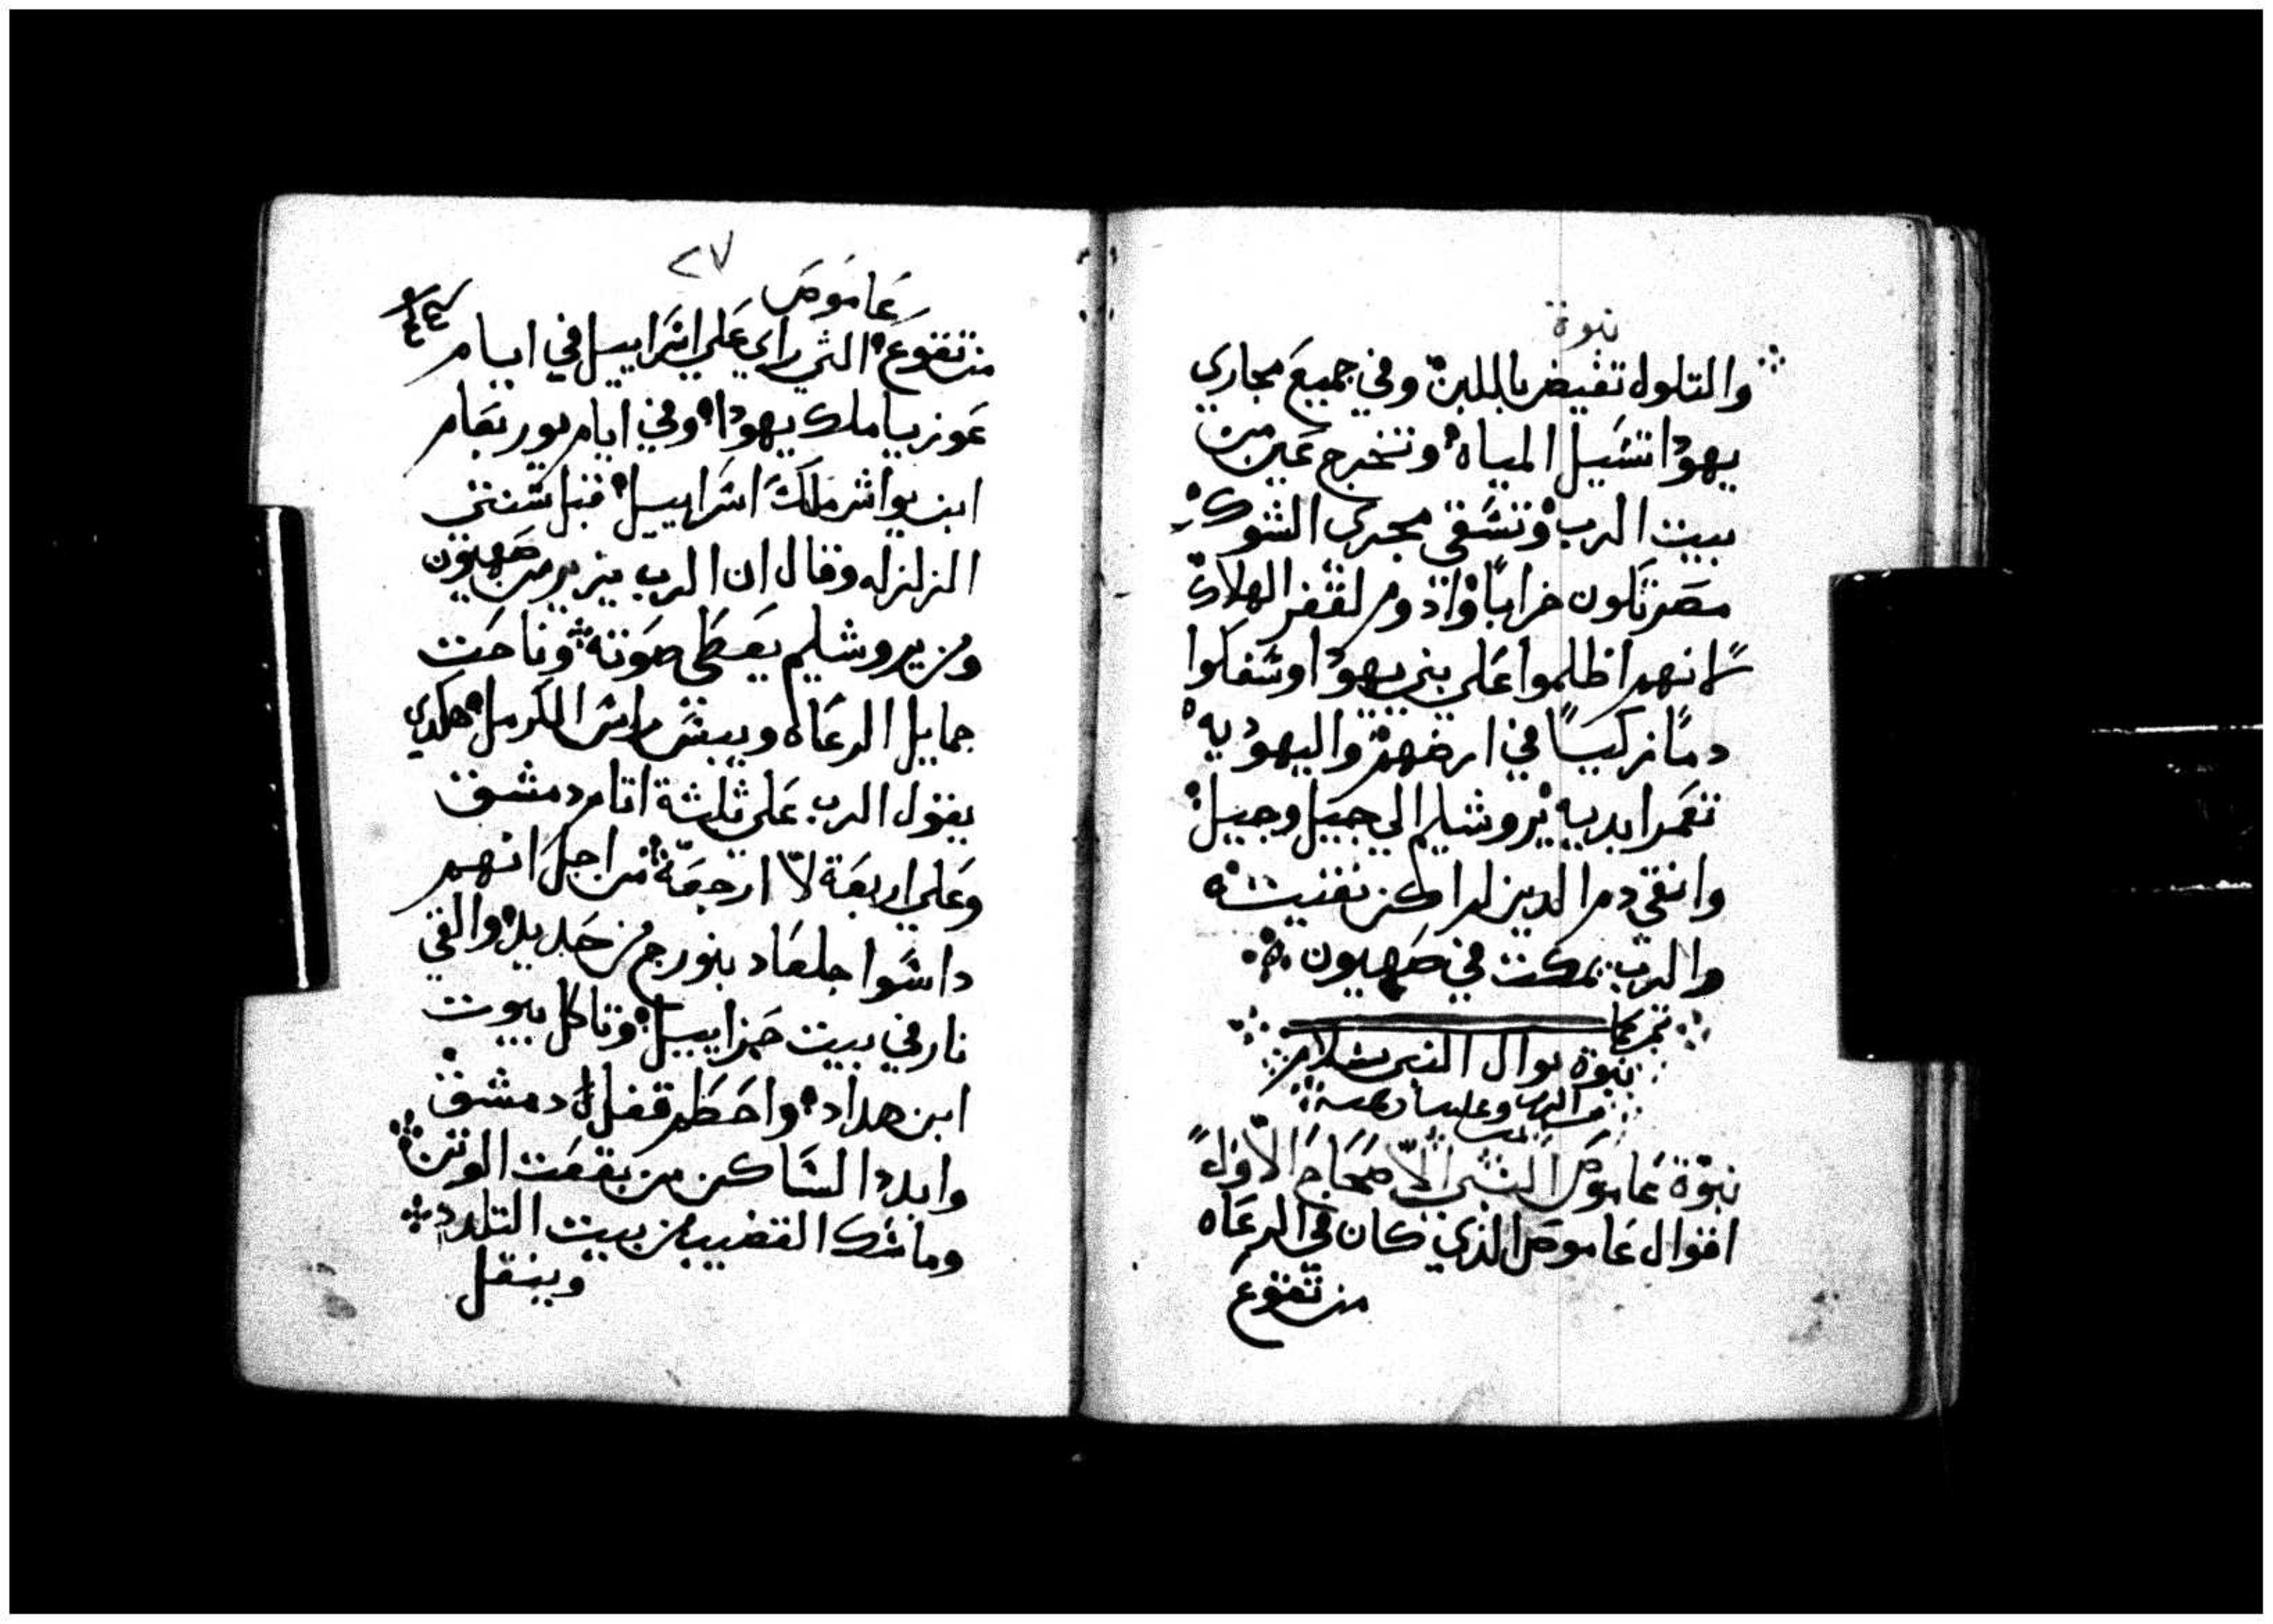 نبوة
والتلول تفيض باللبن وفي جميع مجاري
يهودا تسيل المياه وتخرج عين من
بيت الرب وتسقي مجرى الشوك
مصر تكون خرابًا واذوم لقفر الهلاك
لانهم اظلموا على بني يهودا وسفكوا
دمًا زكيًا في ارضهم واليهوديه
تعمر ابديه يروشليم الى جيل وجيل
وانقي دم الدين لم اكن نقيت
والرب يمكث في صهيون
تم كما
نبوة يوال النبي بسلام
من الرب وعلينا رحمته
نبوة عاموص النبي الاصحاح الاول
اقوال عاموص الذي كان في الرعاه
من تقوع
٢٧
عاموص
من تقوع التي راي على اسراييل في ايام
عوزيا ملك يهودا وفي ايام يوربعام
ابن يواش ملك اسراييل قبل سنتي
الزلزله وقال ان الرب يزير من صهيون
ومن يروشليم يعطى صوته وناحت
جمايل الرعاه ويبس راس الكرمل هكدى
يقول الرب على ثلثة اتام دمشق
وعلى اربعة لا ارجعه من اجل انهم
داسوا جلعاد بنورج من حديد والقي
نار في بيت حزاييل وتاكل بيوت
ابن هداد واحطم قفل دمشق
وابدد الساكن من بقعت الوتن
وماسك القضيب من بيت التلدد
وينقل